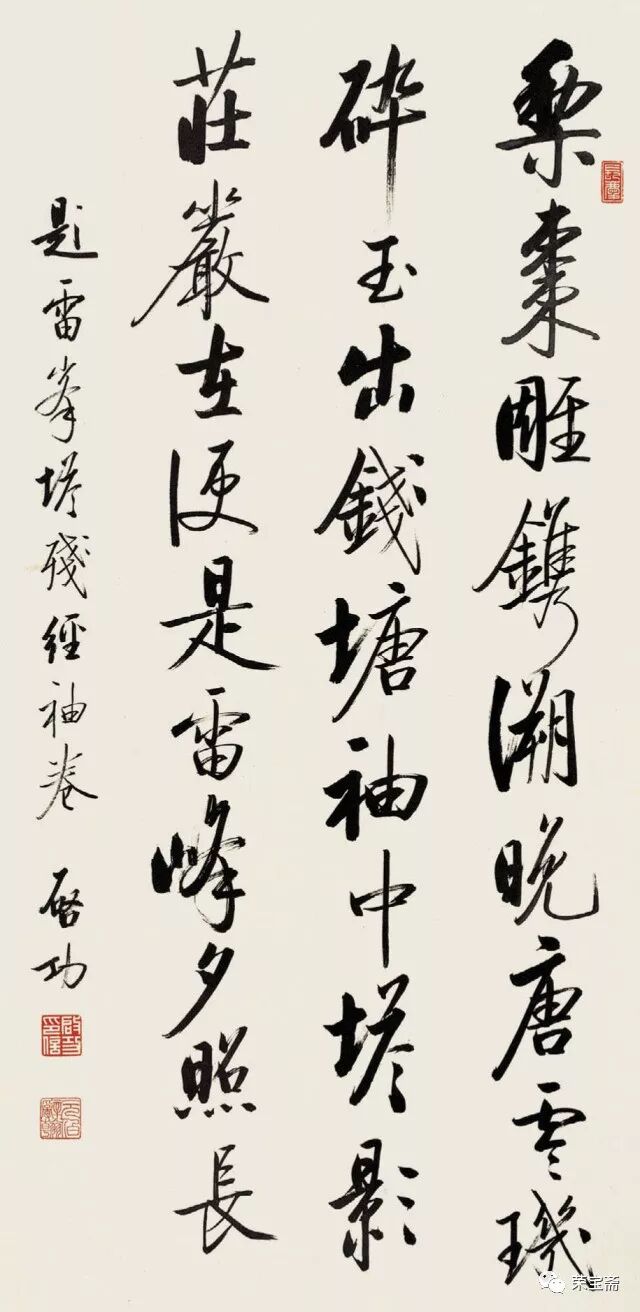 梨棗雕鐫溯晚唐零璣
碎玉出錢塘袖中塔影
莊嚴在便是雷峰夕照長
題雷峯塔殘經袖卷 启功
荣宝斋